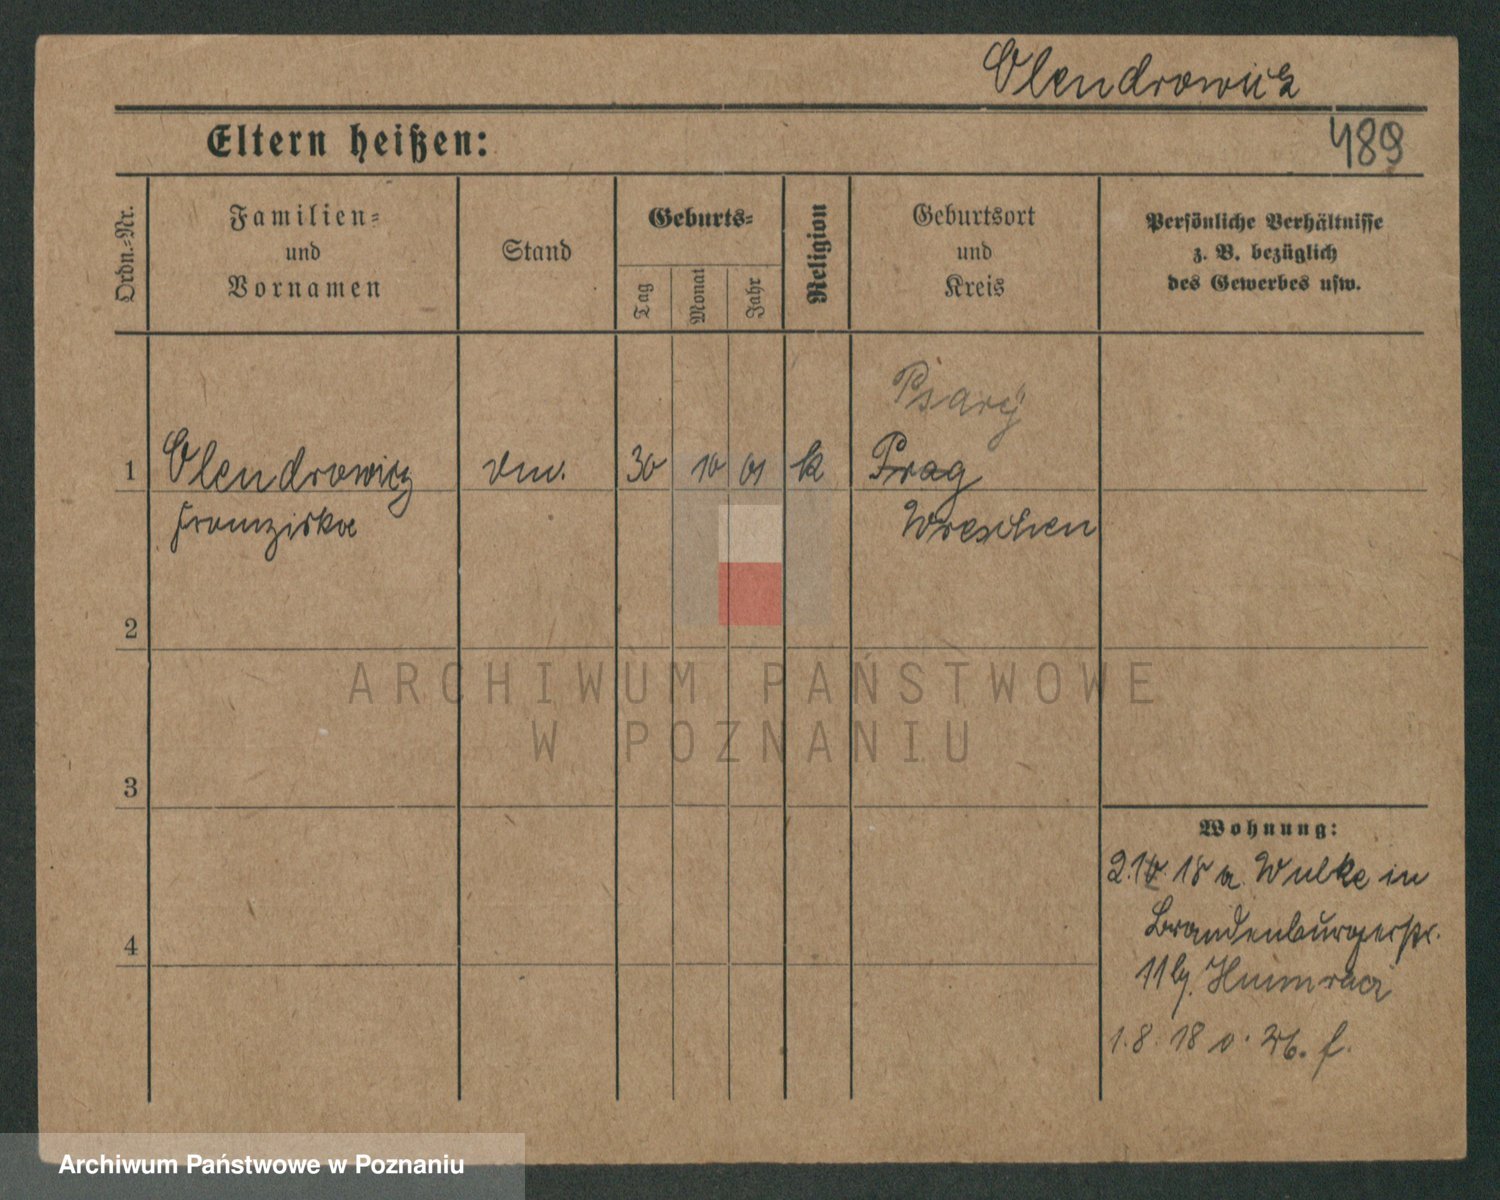 Olendrowicz
Eltern heißen:
489
Ordn.-Nr.
Familien-
und
Vornamen
Stand
Geburts-
Tag
Monat
Jahr
Religion
Geburtsort
und
Kreis
Persönliche Verhältnisse
z. B. bezüglich
des Gewerbes usw.
Psary
1 Olendrowicz 30 10 01 k Prag
Franziska Wreschen
2
3
4
Wohnung:
18 a. Wulke in
Brandenburgerstr.
11 b.
1. 8. 18 v.
ARCHIWUM PAŃSTWOWE
W POZNANIU
Archiwum Państwowe w Poznaniu